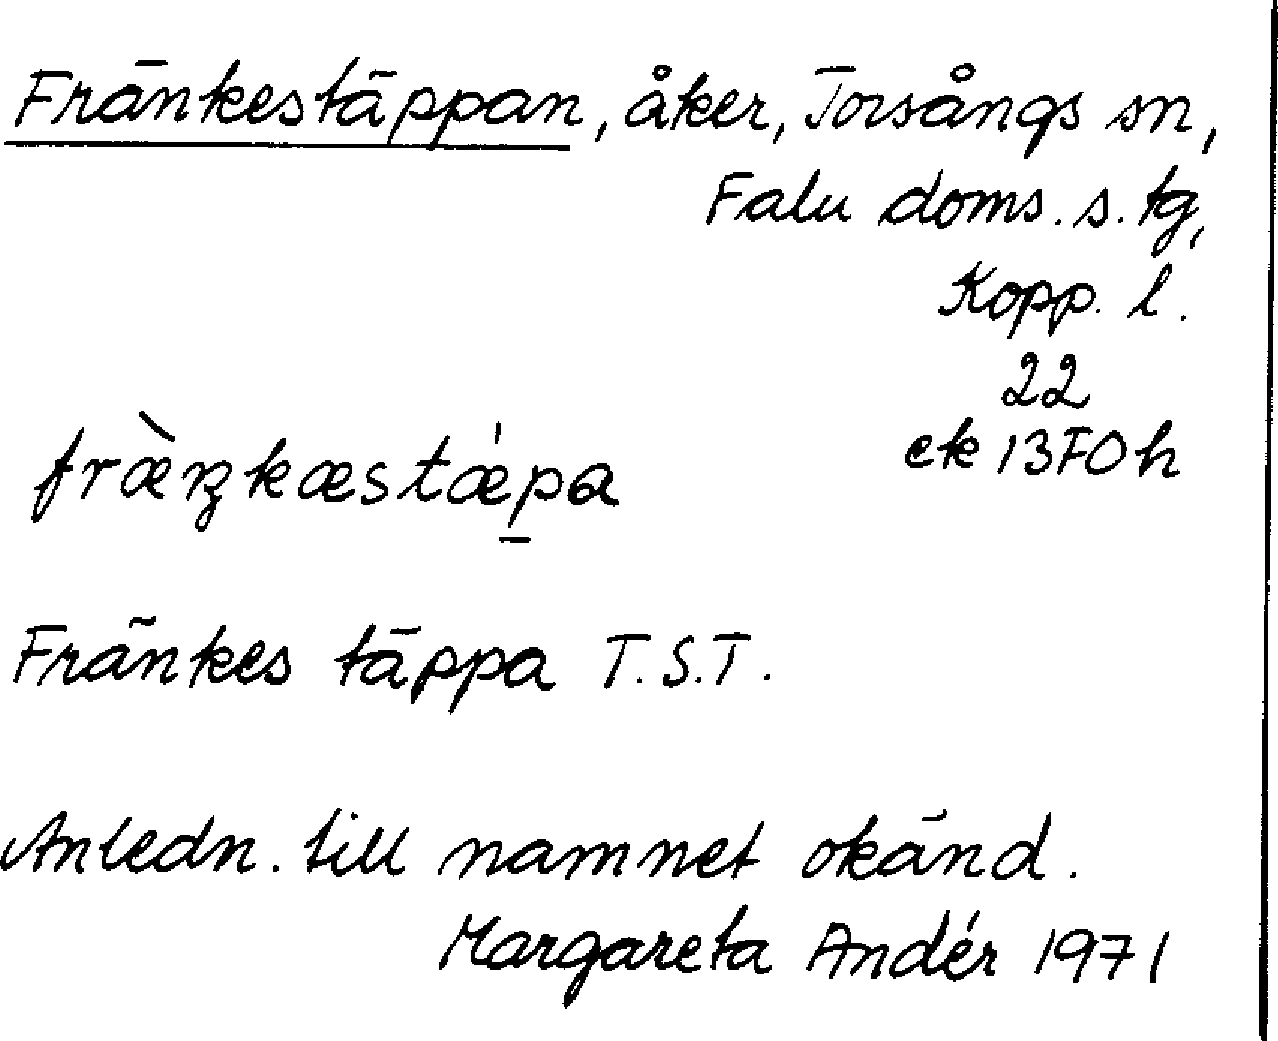 Fränkestäppan, åker, Torsångs sn,
Falu doms. s. tg,
Kopp. l.
22
ek 13F0h
fræ̀ŋkæstǽp̠a
Fränkes täppa T.S.T.
Anledn. till namnet okänd.
Margareta Andér 1971